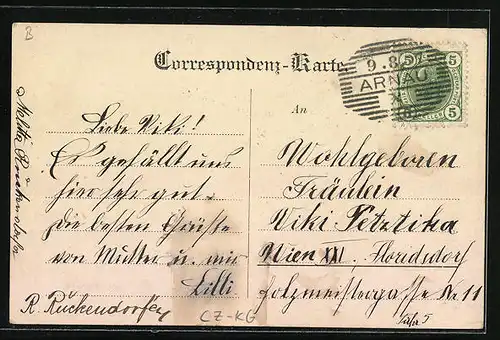 B
Correspondenz-Karte
5 5
5 5
9.8
ARNAU
An
Liebe Viki!
Es gefällt uns
hier sehr gut.
Die besten Grüße
von Mutter u. mir
Lilli
R. Rückendorfer
CZ-KG
Wohlgeboren
Fräulein
Viki Petztika
Wien XXI. Floridsdorf
Holzmeistergasse Nr 11